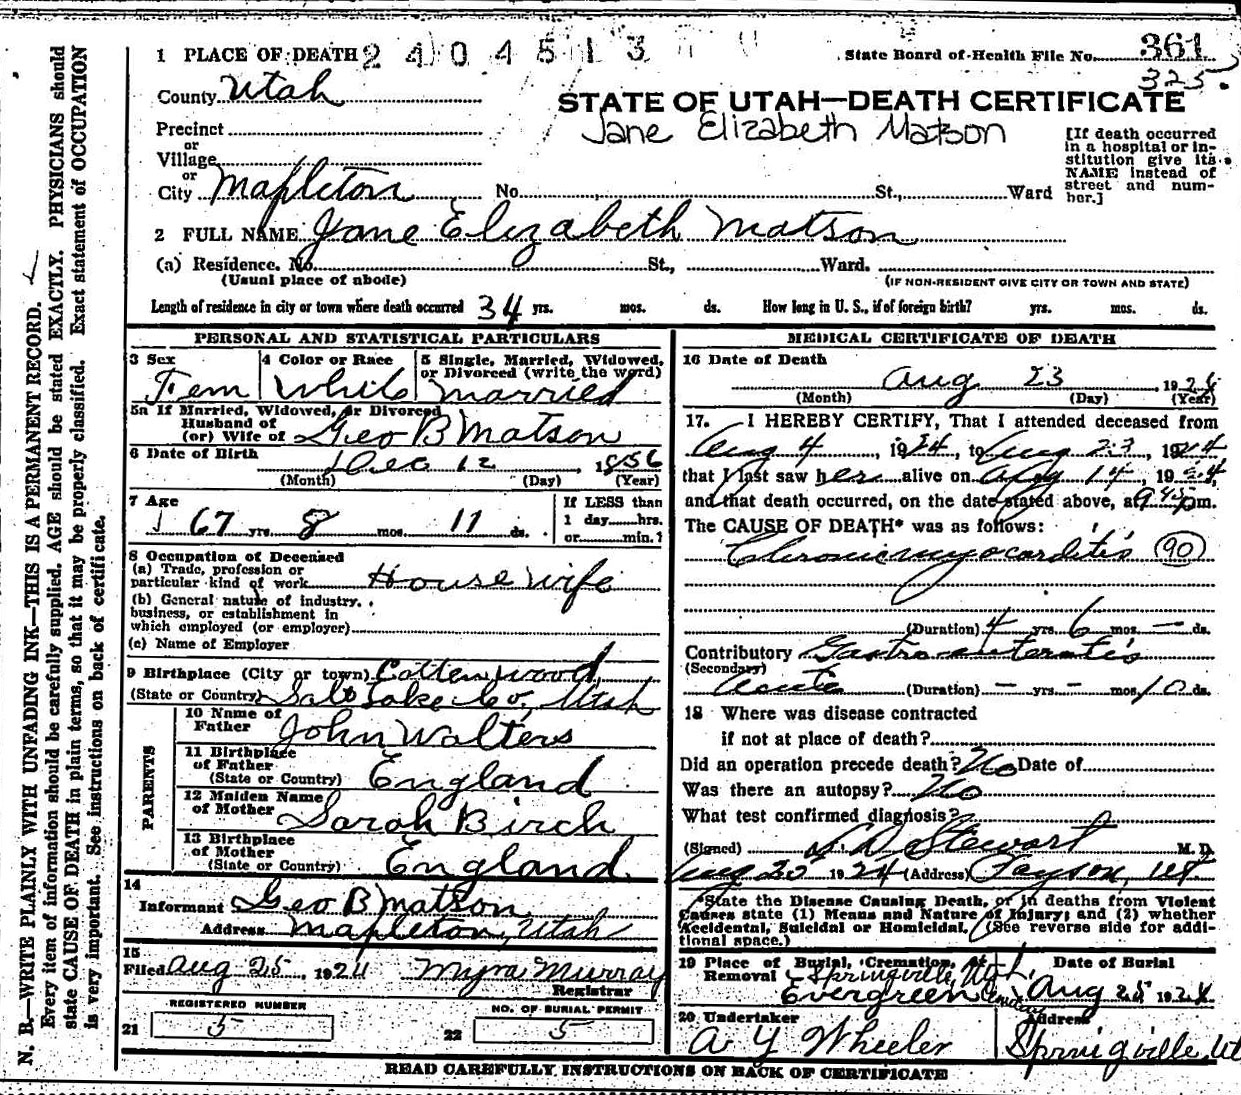 1 PLACE OF DEATH 2 4 0 4 5 1 3
State Board of Health File No. 361
325
County Utah
STATE OF UTAH—DEATH CERTIFICATE
Jane Elizabeth Matson
Precinct
or
Village
or
City Mapleton No. St., Ward
[If death occurred in a hospital or institution give its NAME instead of street and number.]
2 FULL NAME Jane Elizabeth Matson
(a) Residence. No. St., Ward.
(Usual place of abode) (IF NON-RESIDENT GIVE CITY OR TOWN AND STATE)
Length of residence in city or town where death occurred 34 yrs. mos. ds. How long in U. S., if of foreign birth? yrs. mos. ds.
PERSONAL AND STATISTICAL PARTICULARS
3 Sex 4 Color or Race 5 Single, Married, Widowed, or Divorced (write the word)
Fem White Married
5a If Married, Widowed, or Divorced
Husband of
(or) Wife of Geo B Matson
6 Date of Birth Dec 12, 1856
(Month) (Day) (Year)
7 Age If LESS than
67 yrs 8 mos 11 ds. 1 day hrs.
or min.?
8 Occupation of Deceased
(a) Trade, profession or
particular kind of work House wife
(b) General nature of industry,
business, or establishment in
which employed (or employer)
(c) Name of Employer
9 Birthplace (City or town) Cottenwood,
(State or Country) Salt Lake Co, Utah
PARENTS
10 Name of
Father John Walters
11 Birthplace
of Father
(State or Country) England
12 Maiden Name
of Mother Sarah Birch
13 Birthplace
of Mother
(State or Country) England
14
Informant Geo B Matson
Address Mapleton, Utah
15
Filed Aug 25, 1924 Myra Murray
Registrar
REGISTERED NUMBER NO. OF BURIAL PERMIT
21 5 22 5
MEDICAL CERTIFICATE OF DEATH
16 Date of Death
Aug 23, 1924
(Month) (Day) (Year)
17. I HEREBY CERTIFY, That I attended deceased from
Aug 4, 1924, to Aug 23, 1924
that I last saw her alive on Aug 14, 1924
and that death occurred, on the date stated above, at 9 45 p m.
The CAUSE OF DEATH* was as follows:
Chronic myocarditis 90
(Duration) 4 yrs 6 mos — ds.
Contributory Gastro enteratis
(Secondary)
Acute (Duration) — yrs — mos 10 ds.
18 Where was disease contracted
if not at place of death?
Did an operation precede death? No Date of
Was there an autopsy? No
What test confirmed diagnosis?
(Signed) Stewart M. D.
Aug 30 1924 (Address) Payson, Ut.
*State the Disease Causing Death, or in deaths from Violent
Causes state (1) Means and Nature of Injury; and (2) whether
Accidental, Suicidal or Homicidal. (See reverse side for addi-
tional space.)
19 Place of Burial, Cremation, or
Removal Springville, Ut. Date of Burial
Evergreen Aug 25 1924
20 Undertaker Address
A Y Wheeler Springville, Ut
READ CAREFULLY INSTRUCTIONS ON BACK OF CERTIFICATE
N. B.—WRITE PLAINLY WITH UNFADING INK—THIS IS A PERMANENT RECORD.
Every item of information should be carefully supplied. AGE should be stated EXACTLY. PHYSICIANS should
state CAUSE OF DEATH in plain terms, so that it may be properly classified. Exact statement of OCCUPATION
is very important. See instructions on back of certificate.